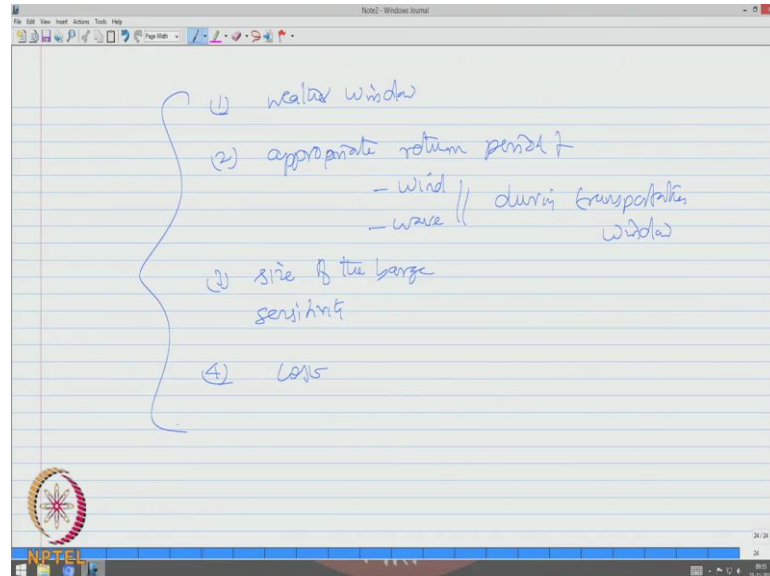 Note2 - Windows Journal
File Edit View Insert Actions Tools Help
Page Width
(1) weather window
(2) appropriate return period of
- wind
- wave
during transportation
window
(3) size of the barge
sensitivity
(4) cost
NPTEL
24 / 24
24
09:55